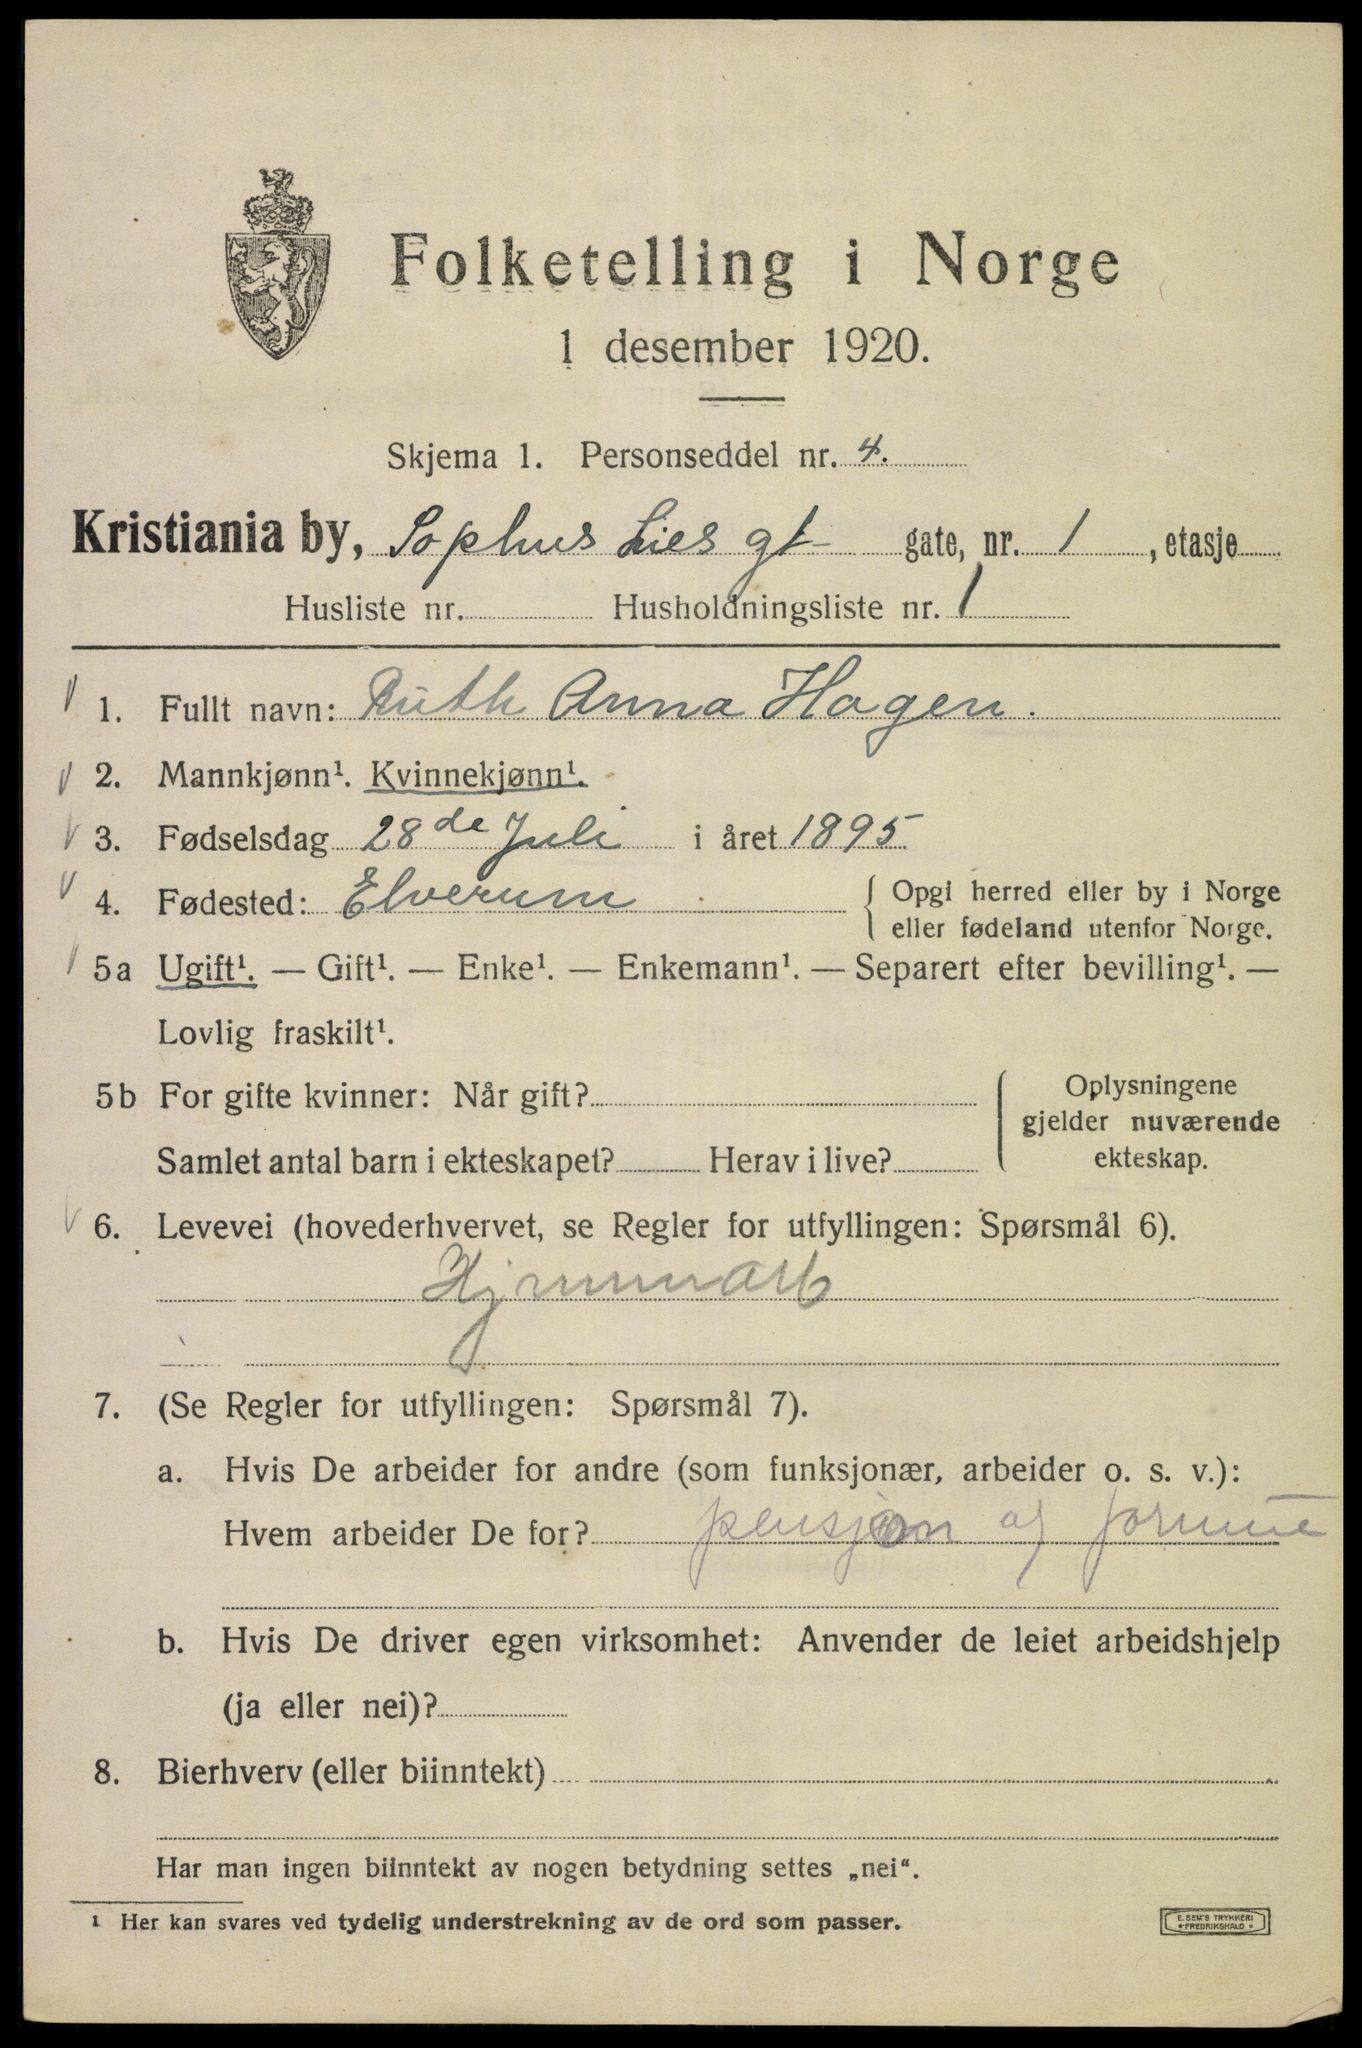 Folketelling i Norge
1 desember 1920.
Skjema 1. Personseddel nr. 4.
Kristiania by, Sophus Lies gt gate, nr. 1, etasje
Husliste nr. Husholdningsliste nr. 1
1. Fullt navn: Ruth Anna Hagen.
2. Mannkjønn¹. Kvinnekjønn¹.
3. Fødselsdag 28de Juli i året 1895.
4. Fødested: Elverum { Opgi herred eller by i Norge
eller fødeland utenfor Norge.
5a Ugift¹. — Gift¹. — Enke¹. — Enkemann¹. — Separert efter bevilling¹. —
Lovlig fraskilt¹.
5b For gifte kvinner: Når gift? { Oplysningene
gjelder nuværende
ekteskap.
Samlet antal barn i ekteskapet? Herav i live?
6. Levevei (hovederhvervet, se Regler for utfyllingen: Spørsmål 6).
Hjemmarb
7. (Se Regler for utfyllingen: Spørsmål 7).
a. Hvis De arbeider for andre (som funksjonær, arbeider o. s. v.):
Hvem arbeider De for? pensjon og formue
b. Hvis De driver egen virksomhet: Anvender de leiet arbeidshjelp
(ja eller nei)?
8. Bierhverv (eller biinntekt)
Har man ingen biinntekt av nogen betydning settes „nei“.
¹ Her kan svares ved tydelig understrekning av de ord som passer.
E. SEM'S TRYKKERI
FREDRIKSHALD